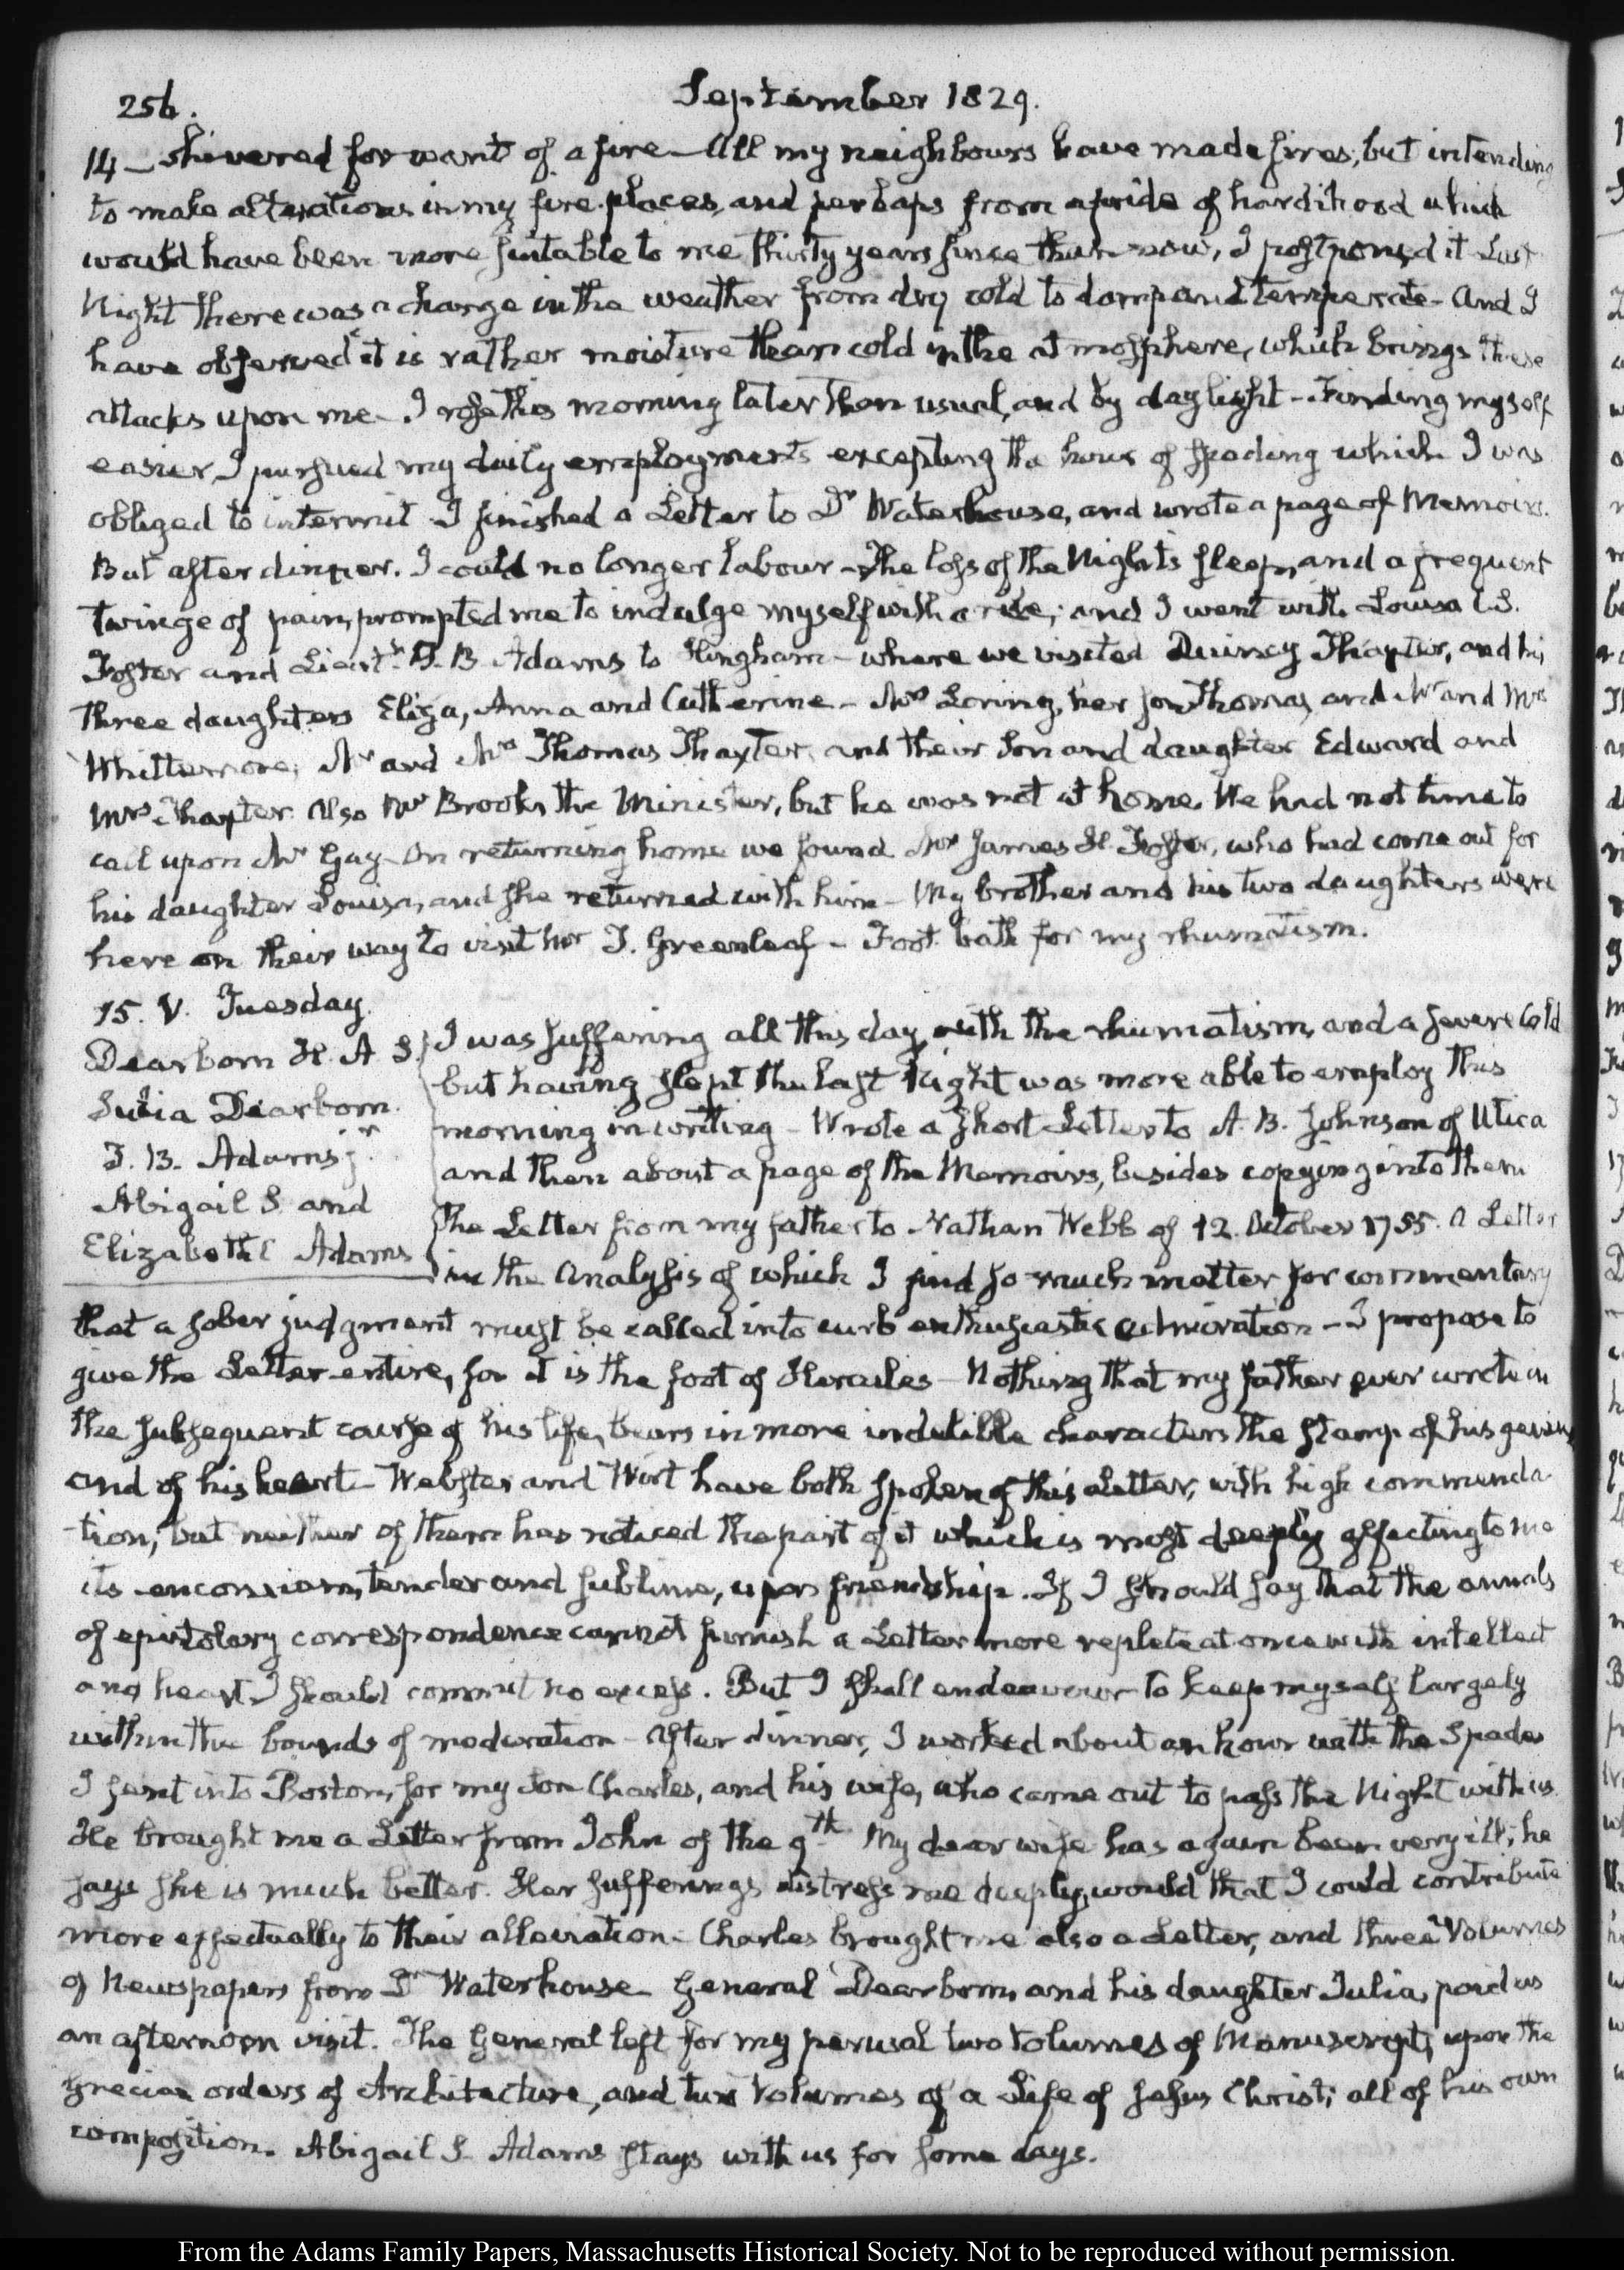 256.
September 1829.
14 — shivered for want of a fire — All my neighbours have made fires; but intending
to make alterations in my fire places, and perhaps from a pride of hardihood which
would have been more suitable to me thirty years since than now, I postponed it Last
Night there was a change in the weather from dry cold to damp and temperate — And I
have observed it is rather moisture than cold in the atmosphere, which brings these
attacks upon me — I rose this morning later than usual, and by daylight — Finding myself
easier, I pursued my daily employments excepting the hour of spading which I was
obliged to intermit I finished a Letter to Dr Waterhouse, and wrote a page of Memoirs.
But after dinner. I could no longer labour — The loss of the Night's sleep, and a frequent
twinge of pain, prompted me to indulge myself with a ride; and I went with Louisa C. S.
Foster and Lieutt T. B Adams to Hingham — where we visited Quincy Thaxter, and his
three daughters Eliza, Anna and Catherine — Mrs Loring, her son Thomas, and Mr and Mrs
Whittemore; Mr and Mrs Thomas Thaxter, and their son and daughter Edward and
Mrs Thaxter. Also Mr Brooks the Minister, but he was not at home. We had not time to
call upon Mr Gay — On returning home we found Mr James H. Foster, who had come out for
his daughter Louisa, and she returned with him — My brother and his two daughters were
here on their way to visit Mr T. Greenleaf — Foot bath for my rhumatism.
15. V. Tuesday.
Dearborn H. A S.
Julia Dearborn.
T. B. Adams jr.
Abigail S. and
Elizabeth C Adams
I was suffering all this day, with the rhumatism, and a severe Cold
but having slept the last Night was more able to employ this
morning in writing — Wrote a short Letter to A. B. Johnson of Utica
and then about a page of the Memoirs, besides copying into them
the Letter from my father to Nathan Webb of 12. October 1755. A Letter
in the Analysis of which I find so much matter for commentary
that a sober judgment must be called in to curb enthusiastic admiration — I propose to
give the Letter entire, for it is the foot of Hercules — Nothing that my father ever wrote in
the subsequent course of his life, bears in more indelible characters the stamp of his genius,
and of his heart — Webster and Wirt have both spoken of this Letter, with high commenda-
-tion; but neither of them has noticed the part of it which is most deeply affecting to me
its encomium, tender and sublime, upon friendship. If I should say that the annals
of epistolary correspondence cannot furnish a Letter more replete at once with intellect
and heart I should commit no excess. But I shall endeavour to keep myself largely
within the bounds of moderation — After dinner, I worked about an hour with the Spade.
I sent into Boston, for my Son Charles, and his wife, who came out to pass the Night with us.
He brought me a Letter from John of the 9th My dear wife has again been very ill; he
says she is much better. Her sufferings distress me deeply, would that I could contribute
more effectually to their alleviation — Charles brought me also a Letter, and three Volumes
of Newspapers from Dr Waterhouse — General Dearborn, and his daughter Julia, paid us
an afternoon visit. The General left for my perusal two Volumes of Manuscript, upon the
Grecian orders of Architecture, and two Volumes of a Life of Jesus Christ; all of his own
composition. Abigail S. Adams stays with us for some days.
From the Adams Family Papers, Massachusetts Historical Society. Not to be reproduced without permission.